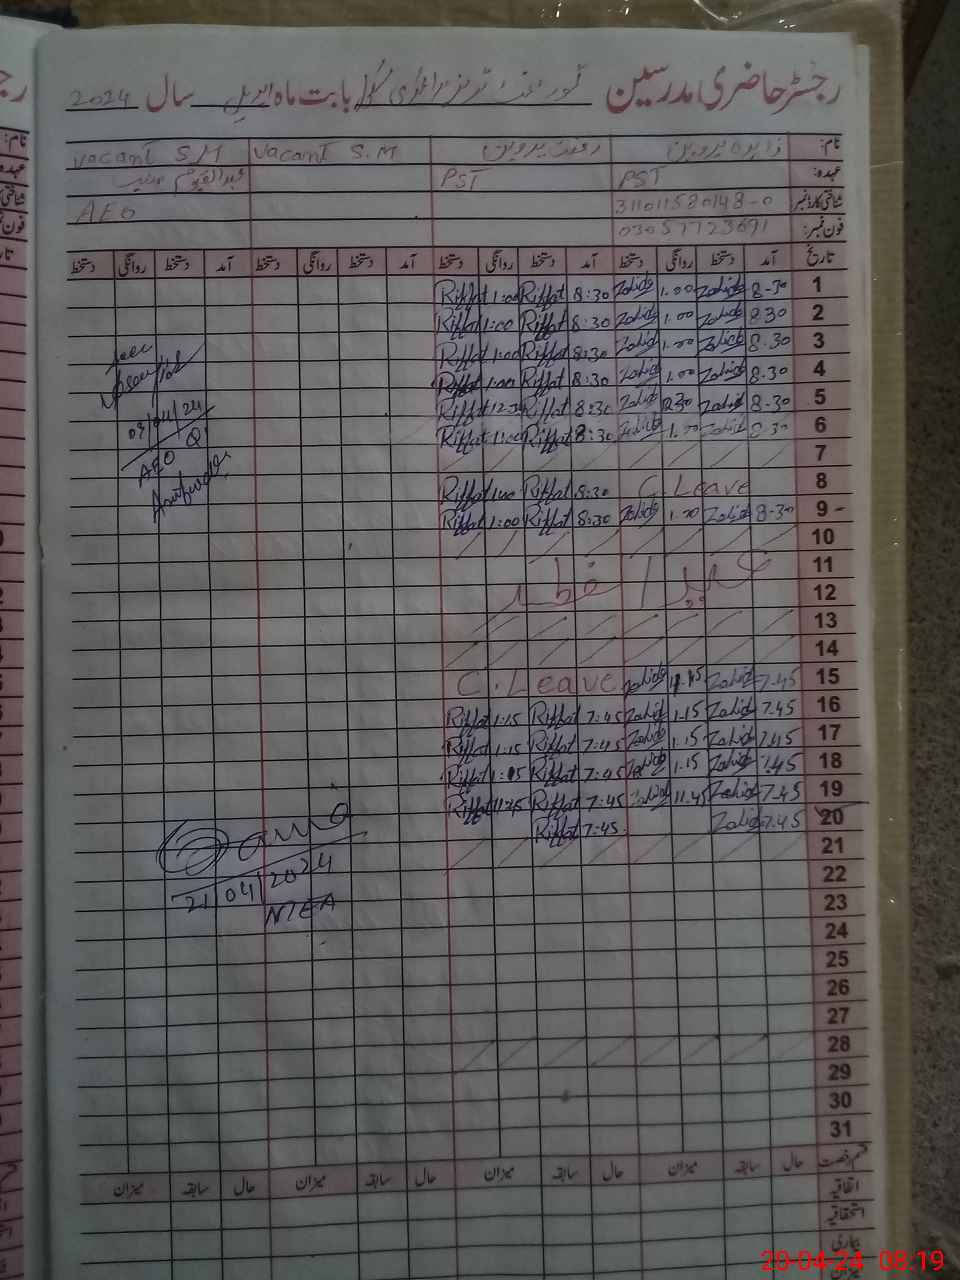 رجسٹر حاضری مدرسین گورنمنٹ گرلز پرائمری سکول بابت ماہ اپریل سال 2024
نام: زاہدہ پروین رفعت پروین Vacant S.M Vacant S.M
عہدہ: PST PST
شناختی کارڈ نمبر 311011580148-0 AEO
فون نمبر: 03057723691
تاریخ آمد دستخط روانگی دستخط آمد دستخط روانگی دستخط آمد دستخط روانگی دستخط آمد دستخط روانگی دستخط
1 8-30 Zahida 1.00 Zahida 8:30 Riffat 1:00 Riffat
2 8.30 Zahida 1.00 Zahida 8:30 Riffat 1:00 Riffat
3 8.30 Zahida 1.00 Zahida 8:30 Riffat 1:00 Riffat
4 8.30 Zahida 1.00 Zahida 8:30 Riffat 1:00 Riffat
5 8-30 Zahida 12.30 Zahida 8:30 Riffat 12:30 Riffat
6 8.30 Zahida 1.00 Zahida 8:30 Riffat 1:00 Riffat
09/04/24
AEO
7
8 C.Leave 8:30 Riffat 1:00 Riffat
9 8-30 Zahida 1.00 Zahida 8:30 Riffat 1:00 Riffat
10
11
عید الفطر
12
13
14
15 7.45 Zahida 1.15 Zahida C.Leave
16 7.45 Zahida 1.15 Zahida 7:45 Riffat 1:15 Riffat
17 7.45 Zahida 1.15 Zahida 7:45 Riffat 1:15 Riffat
18 7.45 Zahida 1.15 Zahida 7:45 Riffat 1:15 Riffat
19 7.45 Zahida 11.45 Zahida 7:45 Riffat 11:45 Riffat
20 7.45 Zahida 7:45 Riffat
21
22
21/04/2024
23
24
25
26
27
28
29
30
31
قسم رخصت حال سابقہ میزان حال سابقہ میزان حال سابقہ میزان حال سابقہ میزان
اتفاقیہ
استحقاقیہ
بیماری
میزان
20-04-24 08:19